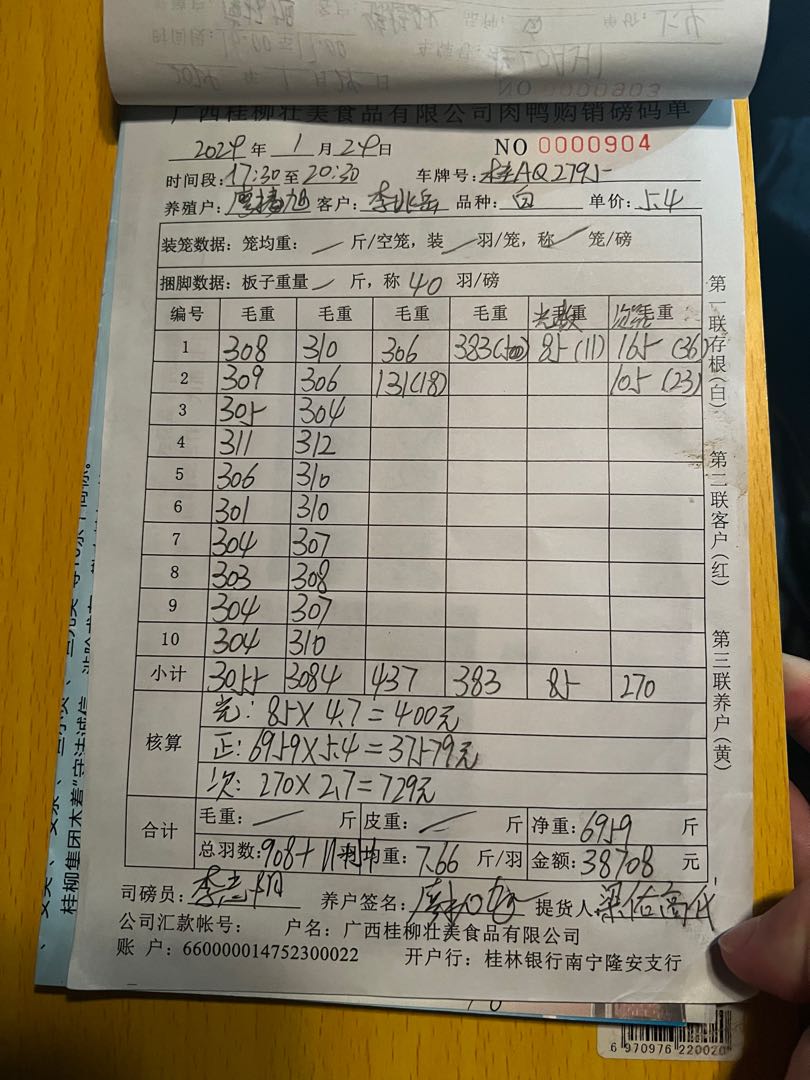 NO 0000903
广西桂柳壮美食品有限公司肉鸭购销磅码单
2024 年 1 月 24 日 NO 0000904
时间段: 17:30 至 20:30 车牌号: 桂AQ2795
养殖户: 客户: 李兆岳 品种: 白 单价: 5.4
装笼数据: 笼均重: / 斤/空笼, 装 / 羽/笼, 称 / 笼/磅
捆脚数据: 板子重量 / 斤, 称 40 羽/磅
编号 毛重 毛重 毛重 毛重 重 毛重
1 308 310 306 383(50) 85(11) 165(36)
2 309 306 131(18) 105(23)
3 305 304
4 311 312
5 306 310
6 301 310
7 304 307
8 303 308
9 304 307
10 304 310
小计 3055 3084 437 383 85 270
核算
光: 85×4.7=400元
正: 6959×5.4=37579元
次: 270×2.7=729元
合计
毛重: / 斤 皮重: / 斤 净重: 6959 斤
总羽数: 908+11羽 均重: 7.66 斤/羽 金额: 38708 元
司磅员: 养户签名: 提货人
公司汇款帐号: 户名: 广西桂柳壮美食品有限公司
账 户: 660000014752300022 开户行: 桂林银行南宁隆安支行
第一联存根(白) 第二联客户(红) 第三联养户(黄)
桂柳集团本着"守法诚信、
6 970976 220020